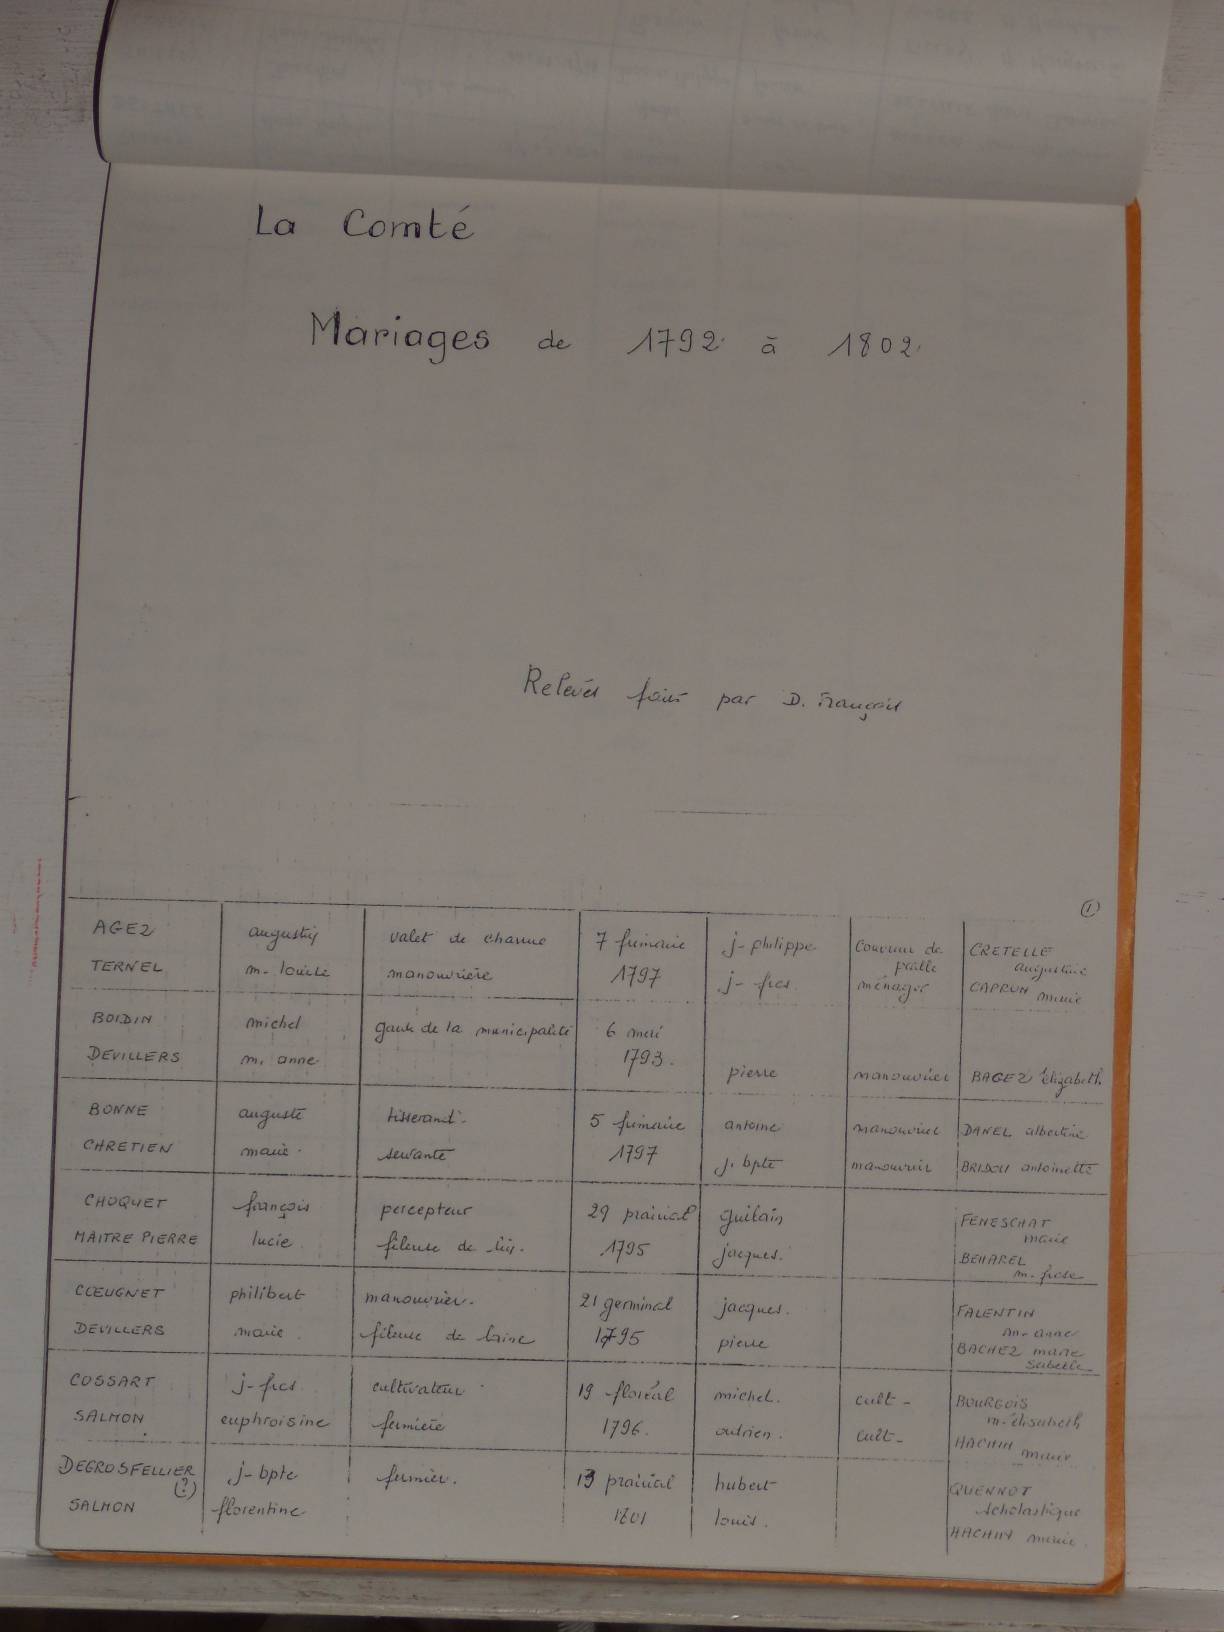 La Comté
Mariages de 1792 à 1802
Relevés faits par D. François
①
AGEZ augustin valet de charrue 7 frimaire j-philippe couvreur de paille CRETELLE augustine
TERNEL m. louise manouvrière 1797 j-fçs. ménager CAPRON marie
BOIDIN michel garde de la municipalité 6 mai
DEVILLERS m. anne 1793. pierre manouvrier BAGEZ élizabeth
BONNE auguste tisserand. 5 frimaire antoine manouvrier DANEL albertine
CHRETIEN marie. servante 1797 j. bpte manouvrier BRIDOU antoinette
CHOQUET françois percepteur 29 prairial guilain FENESCHAT marie
MAITRE PIERRE lucie fileuse de lin. 1795 jacques. BEHAREL m. frse
CCEUGNET philibert manouvrier. 21 germinal jacques. FALENTIN m. anne
DEVILLERS marie. fileuse de laine 1795 pierre BACHEZ marie isabelle
COSSART j-fcs cultivateur 19 floréal michel. cult- BOURGOIS m. élisabeth
SALMON euphroisine fermière 1796. adrien. cult- HACHIN marie
DEGROSFELLIER (?) j-bpte fermier. 13 prairial hubert QUENNOT scholastique
SALMON florentine 1801 louis. HACHIN marie.